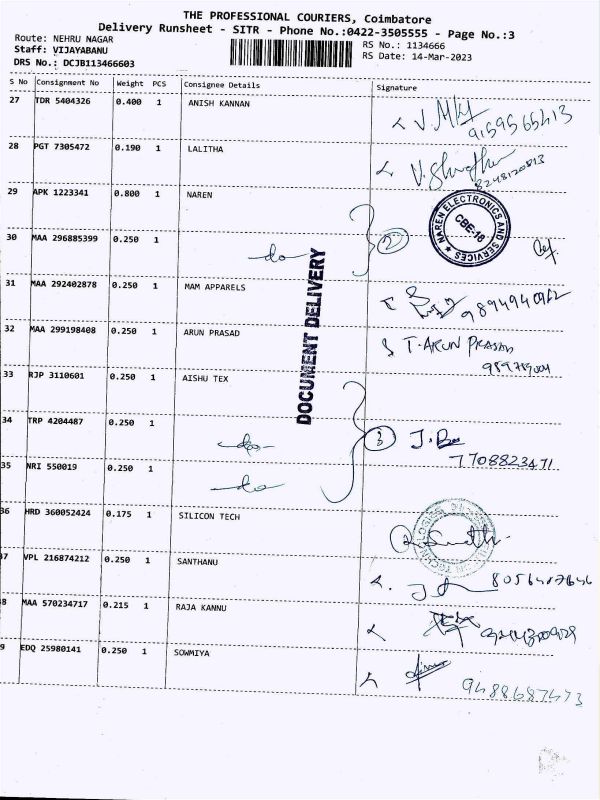 THE PROFESSIONAL COURIERS, Coimbatore
Delivery Runsheet - SITR - Phone No.:0422-3505555 - Page No.:3
Route: NEHRU NAGAR
Staff: VIJAYABANU
DRS No.: DCJB113466603
RS No.: 1134666
RS Date: 14-Mar-2023
S No Consignment No Weight PCS Consignee Details Signature
27 TDR 5404326 0.400 1 ANISH KANNAN
28 PGT 7305472 0.190 1 LALITHA
29 APK 1223341 0.800 1 NAREN
NAREN ELECTRONICS AND SERVICES
CBE-18
30 MAA 296885399 0.250 1 do 2
DOCUMENT DELIVERY
31 MAA 292402878 0.250 1 MAM APPARELS
32 MAA 299198408 0.250 1 ARUN PRASAD T. ARUN PRASAD
33 RJP 3110601 0.250 1 AISHU TEX
34 TRP 4204487 0.250 1 do 3
7708823471
35 NRI 550019 0.250 1 do
36 HRD 360052424 0.175 1 SILICON TECH
37 VPL 216874212 0.250 1 SANTHANU
38 MAA 570234717 0.215 1 RAJA KANNU
39 EDQ 25980141 0.250 1 SOWMIYA
9488687473